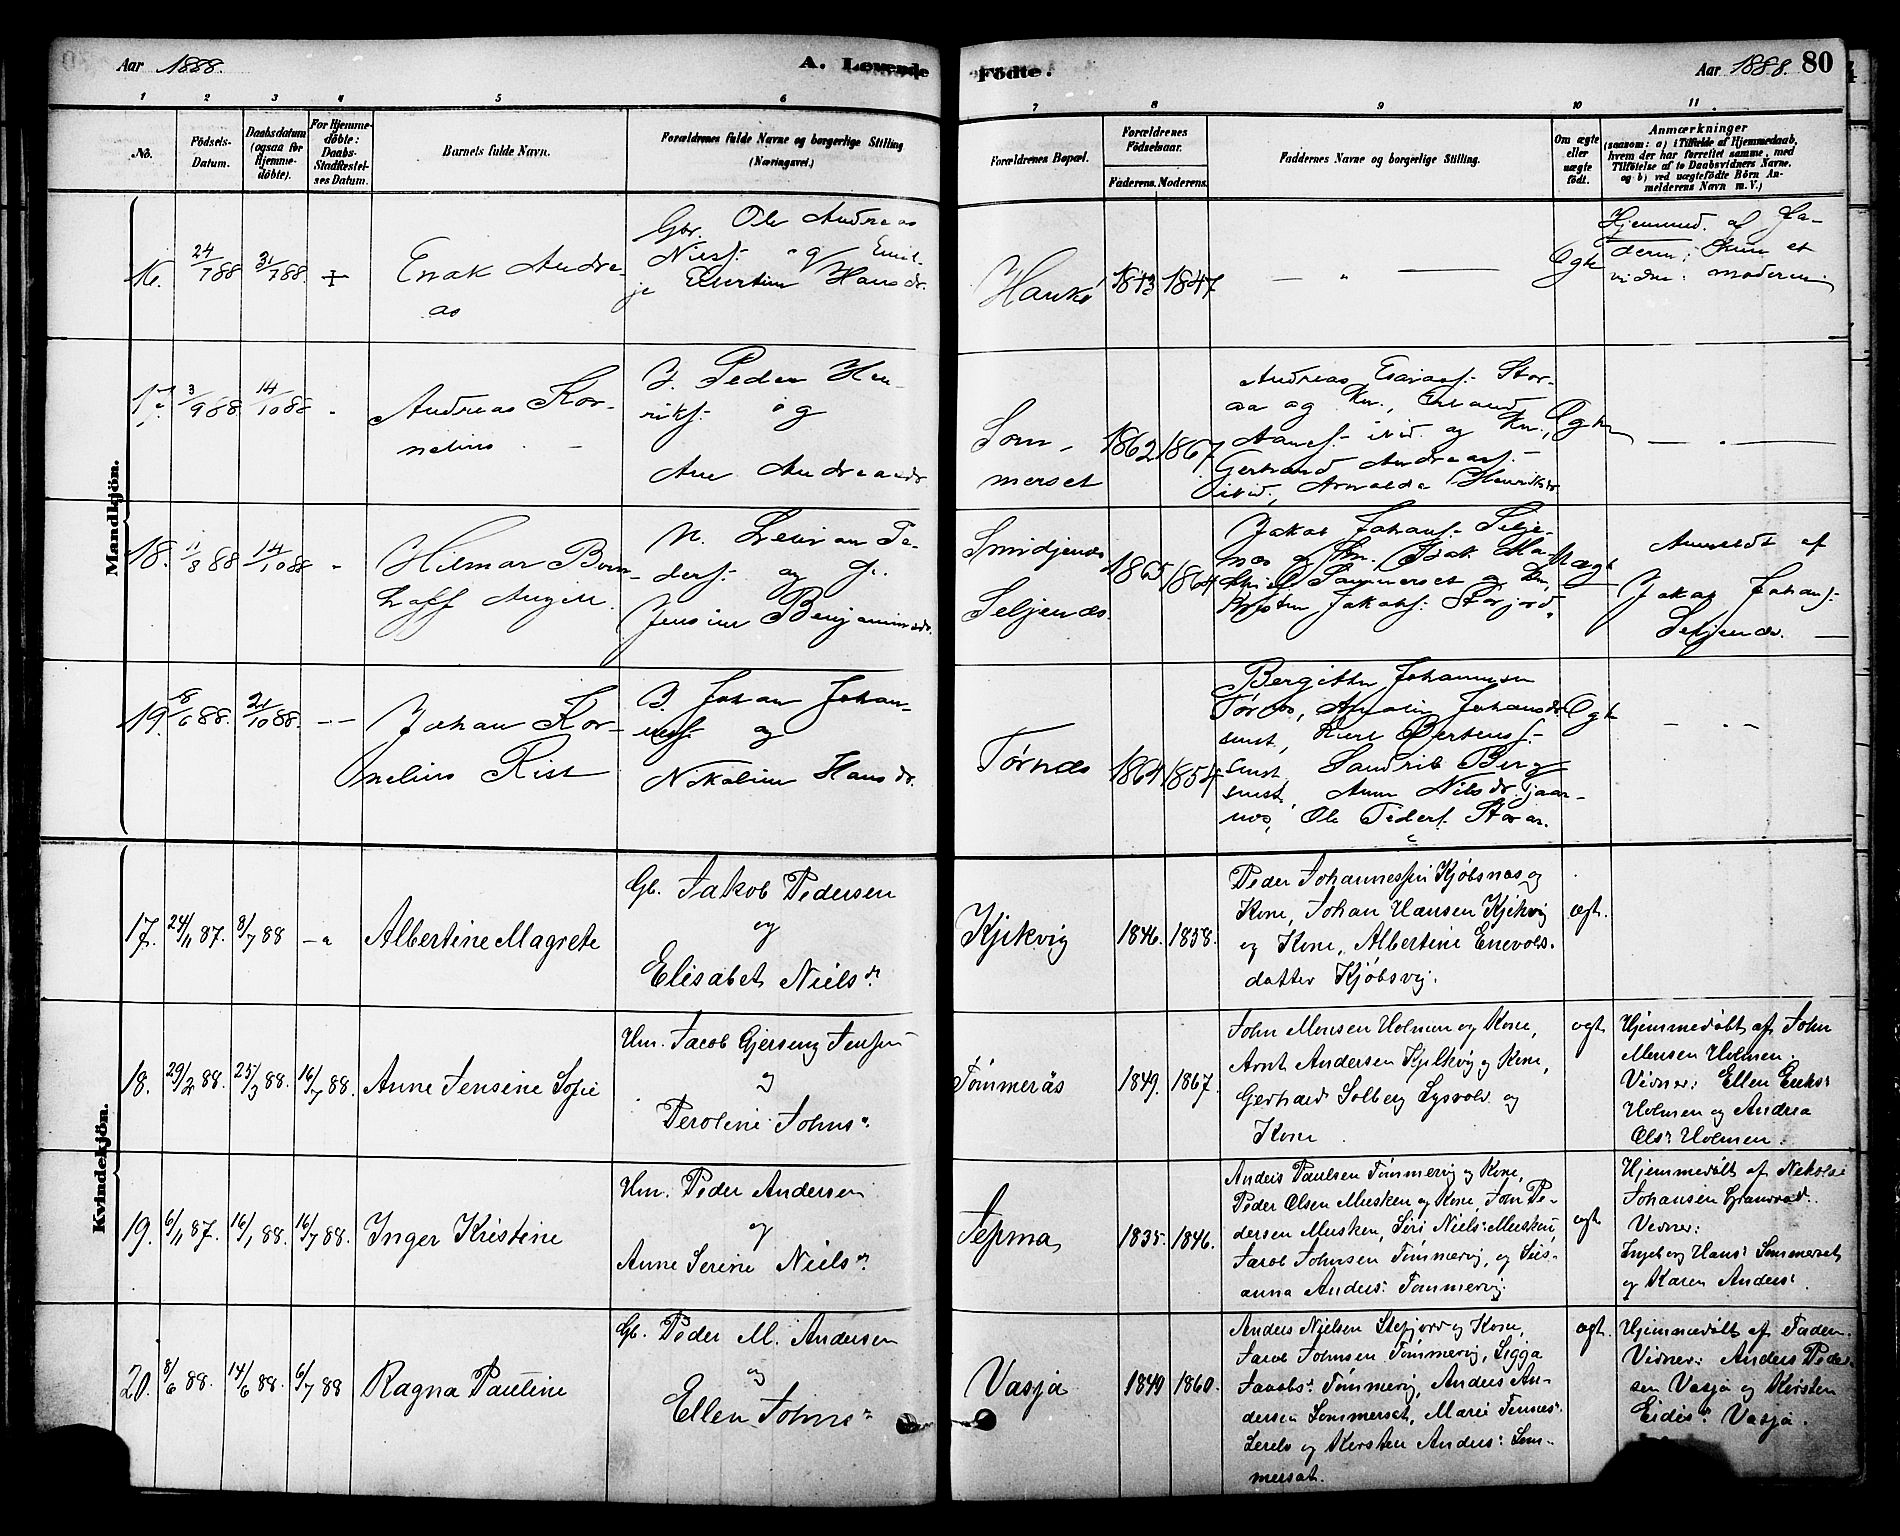 Aar 1888.
A. Levende
Födte.
Aar 1888. 80
1 2 3 4 5 6 7 8 9 10 11
No.
Födsels-
Datum.
Daabsdatum
(ogsaa for
Hjemme-
döbte).
For Hjemme-
döbte:
Daabs-
Stadfæstel-
ses Datum.
Barnets fulde Navn.
Forældrenes fulde Navne og borgerlige Stilling
(Næringsvei.)
Forældrenes Bopæl.
Forældrenes
Födselsaar.
Faderens. Moderens.
Faddernes Navne og borgerlige Stilling.
Om ægte
eller
uægte
födt.
Anmærkninger
(saasom: a) i Tilfælde af Hjemmedaab,
hvem der har forrettet samme, med
Tilföielse af to Daabsvidners Navne.
og b) ved uægtefödte Börn An-
melderens Navn m. V.)
Mandkjön.
16. 24/7 88 31/7 88
Enok Andre-
as
Gbr. Ole Andreas
Nielsf. og Emil-
je Elertine Hansdr.
1843 1847
Ægte
Hjemmed. af Fa-
deren; kun et
vidne: moderen
17. 3/9 88 14/10 88
Andreas Kor-
nelius
I. Peder Hen-
riksf. og
Ane Andreasdr.
Som-
merset
1862 1867
Andreas Esaiasf. Stor-
aa og Kn., Erland
Aanesf. ibid. og Kn.,
Gertrand Andreasf.
ibid., Arnalda Henriksdr.
Ægte
18. 11/8 88 14/10 88
Hilmar Bern-
hoff Angell.
Pe-
dersf. og
Jensine Benjaminsdr.
Smidjenes
Seljenæs.
1865 1864
Jakob Johansf. Selje-
næs og Kn. Isak
Sammerset og Kn,
Jakobsf. Storjord.
Uægt
Anmeldt af
Jakob Johansf.
Seljenæs.
19. 8/6 88. 21/10 88.
Johan Kor-
nelius Rist
I. Johan Johan-
nesf. og
Nikoline Hansdr.
Tørnæs
1864 1854
Bergitte Johannesen
Tørnæs, Amalie Johansdr.
smst,
smst, Sandrik Berg
smst, Anne Nilsdr.
Ole Pedersf. Storaa.
Ægte
Kvindekjön.
17. 24/11 87. 8/7 88
Albertine Magrete
Gb. Jakob Pedersen
og
Elisabet Nielsdr.
Kjikvig
1846. 1858.
Peder Johannessen Kjöbsnæs og
Kone, Johan Hansen Kjikvig
og Kone, Albertine Enevols-
datter Kjöbsvig.
ægt.
18. 29/2 88. 25/3 88. 16/7 88.
Anne Jensine Sofie
Hm. Jacob Gjerseng Jensen
og
Peroline Johnsdr.
Tömmerås
1849. 1867.
John Monsen Holmen og Kone,
Arnt Andersen Kjelkvig og Kone,
Gerhard Solberg Lysvold og
Kone
ægt.
Hjemmedøbt af John
Monsen Holmen.
Vidner: Ellen Eriks:
Holmen og Andrea
Ols: Holmen.
19. 6/11 87. 16/1 88. 16/7 88.
Inger Kristine
Hm. Peder Andersen
og
Anne Serine Nielsdr.
Tepma
1835. 1846.
Anders Paulsen Tömmervig og Kone,
Peder Olsen Musken og Kone, Jon Pe-
dersen Musken, Siri Niels: Musken,
Jacob Johnsen Tömmervig, og Sus-
anna Anders: Tömmervig.
ægt.
Hjemmedøbt af Nekolai
Johansen Grunvad.
Vidner:
Ingeborg Hans: Sommerset
og Karen Anders:
20. 8/6 88. 14/6 88. 6/7 88
Ragna Pauline
Gb. Peder M. Andersen
og
Ellen Johnsdr
Vasja
1849 1860.
Anders Nielsen Stefjord og Kone,
Jacob Johnsen Tömmervig, Sigga
Jacobs: Tömmervig, Anders An-
dersen Sommerset, Marie Tennes:
og Kersten Anders: Som-
merset.
ægt.
Hjemmedøbt af Faderen.
Vidner: Anders Peder-
sen Vasja og Kirsten
Eidis: Vasja.